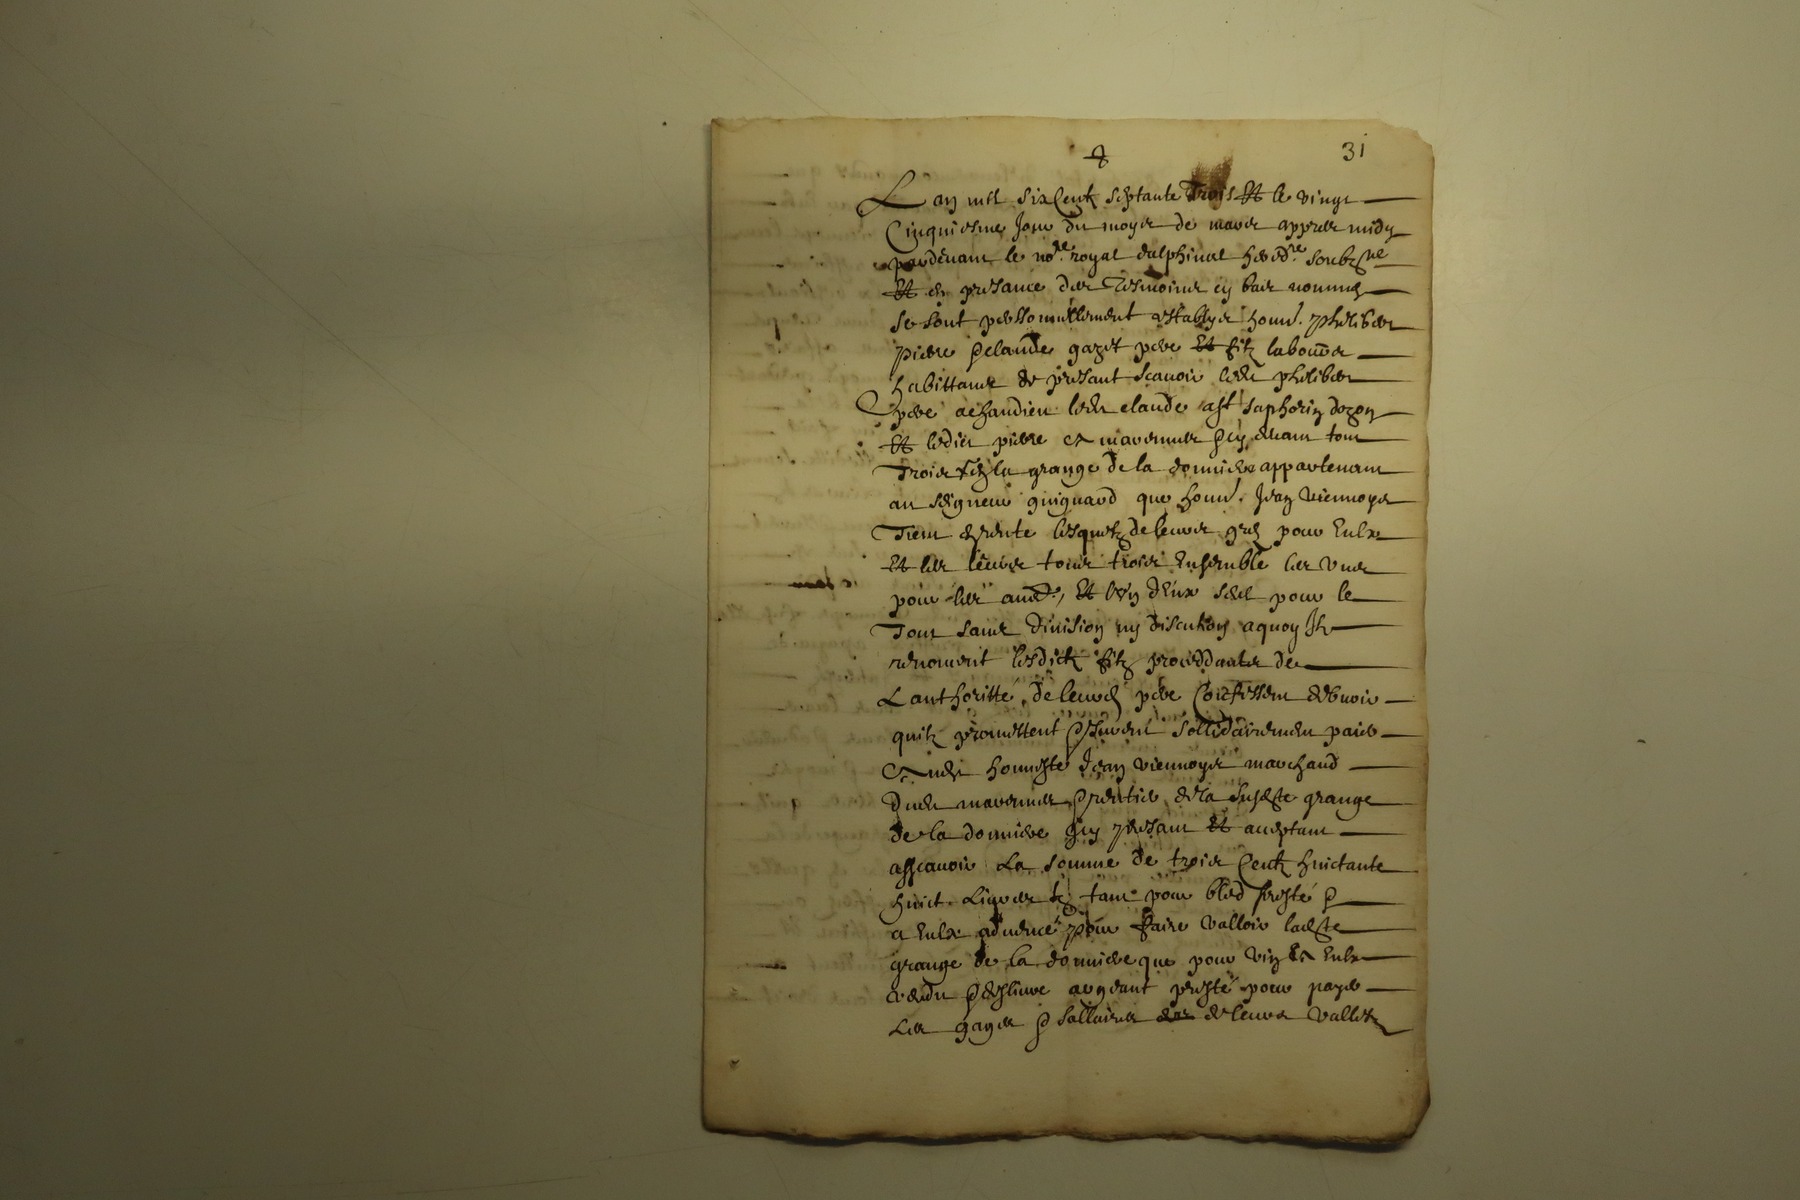 31
Lan mil six Centz septante Trois Et le vingt
Cinquiesme Jour du moys de mars appres midy
pardevant le no.re royal dalphinal hered.re soubz.ne
Et en presance des Tesmoins cy bas nommes
se sont personnellement establys honn. philiber
pierre claude gazet pere Et filz laboure
habittants de presant scavoir ledit philiber
pere a chandieu ledit claude a st saphorin dozon
Et ledict pierre a marennes tous
Trois la grange de la donniere appartenant
au seigneur guignard que honn. Jean viennoys
Tient de rente lesquelz de leurs gres pour Eulx
Et les leurs tous trois Ensemble les uns
pour les au.es, Et lun deux seul pour le
Tout sans division ny discution a quoy Ilz
renoncent lesdictz filz proceddantz de
Lanthoritté de leurd pere Confessent debvoir
quilz promettent sollidairement paier
honneste Jean viennoys marchand
marennes rentier de la susdte grange
de la donniere presant Et aceptant
assavoir La somme de trois Centz huictante
huict Livres tz tant pour bled presté
a Eulx advence pour faire valloir ladte
grange de la donniere que pour vin Eulx
vendu argent presté pour payer
Les gages sallaires de leurs valletz